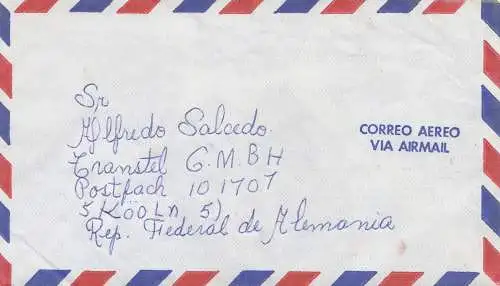 Sr
Alfredo Salcedo.
Transtel G.M.B H
Postfach 101707
5 KööLn 5)
Rep. Federal de Alemania
CORREO AEREO
VIA AIRMAIL